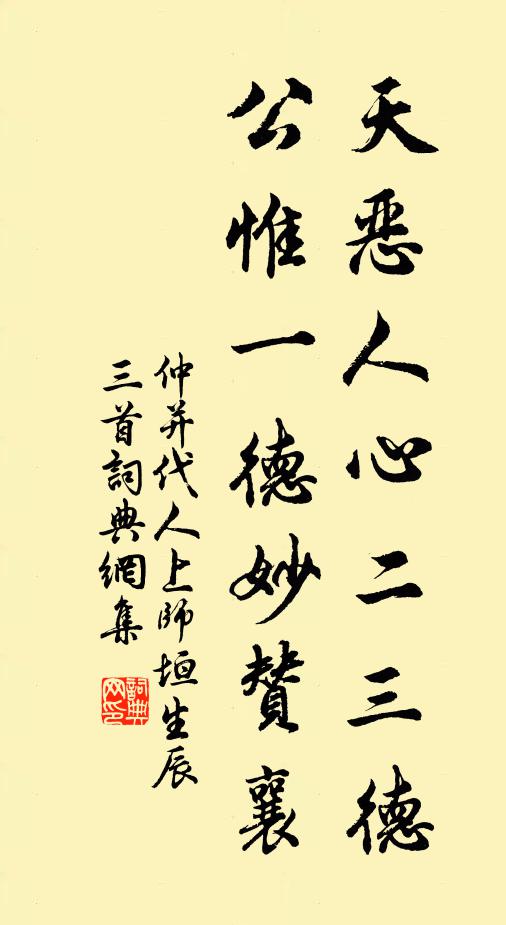 天惡人心二三德
公惟一德妙贊襄
仲并代人上師垣生辰
三首詞典網集
詞典网印